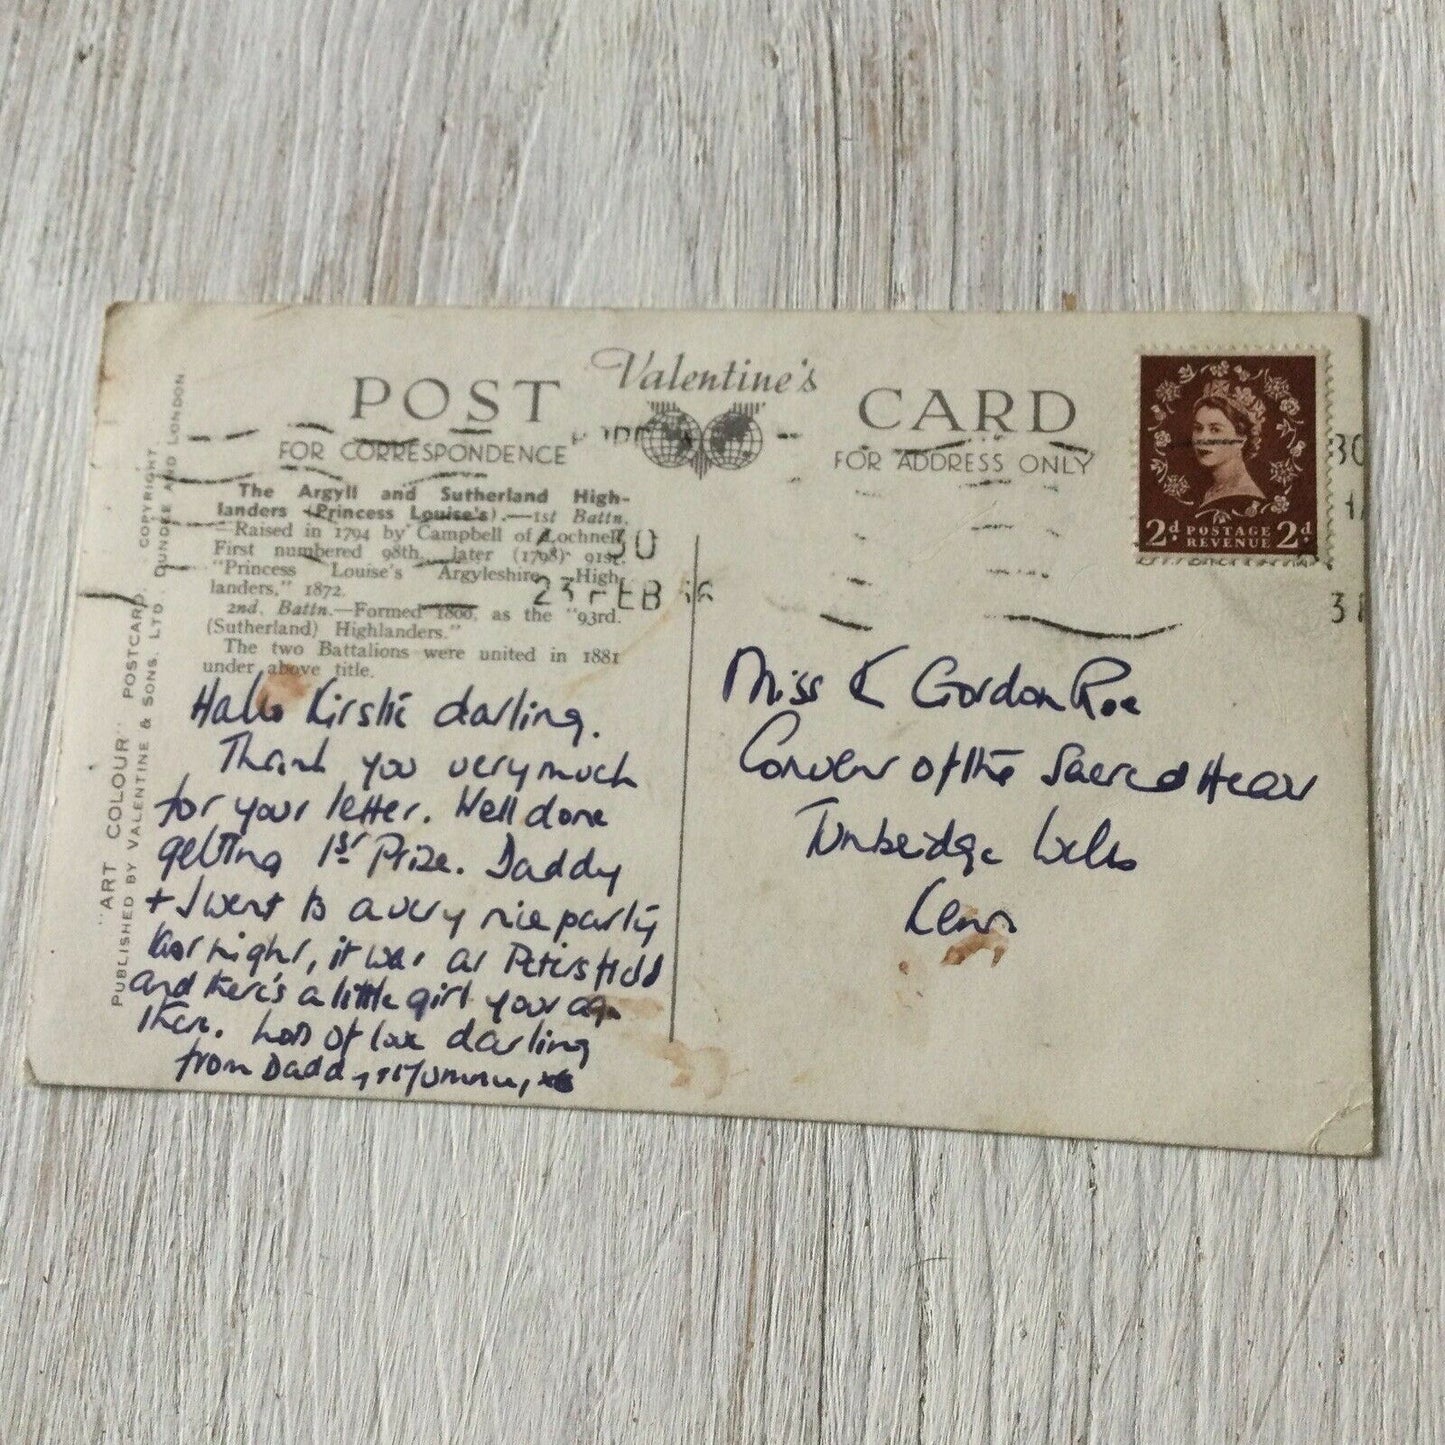 Valentine's
POST CARD
FOR CORRESPONDENCE
FOR ADDRESS ONLY
The Argyll and Sutherland High-
landers (Princess Louise's).—1st Battn.
—Raised in 1794 by Campbell of Lochnell.
First numbered 98th, later (1798) 91st.
"Princess Louise's Argyleshire High-
landers," 1872.
2nd. Battn.—Formed 1800, as the "93rd.
(Sutherland) Highlanders."
The two Battalions were united in 1881
under above title.
30
23 FEB
Hallo Kirstie darling.
Thank you very much
for your letter. Well done
getting 1st Prize. Daddy
+ I went to a very nice party
last night, it was at Petersfield
and there's a little girl your age
there. Lots of love darling
from Daddy + Mummy, x
"ART COLOUR" POSTCARD COPYRIGHT
PUBLISHED BY VALENTINE & SONS. LTD. DUNDEE AND LONDON
2d POSTAGE REVENUE 2d
30
Miss K Gordon Roe
Convent of the Sacred Heart
Tunbridge Wells
Kent